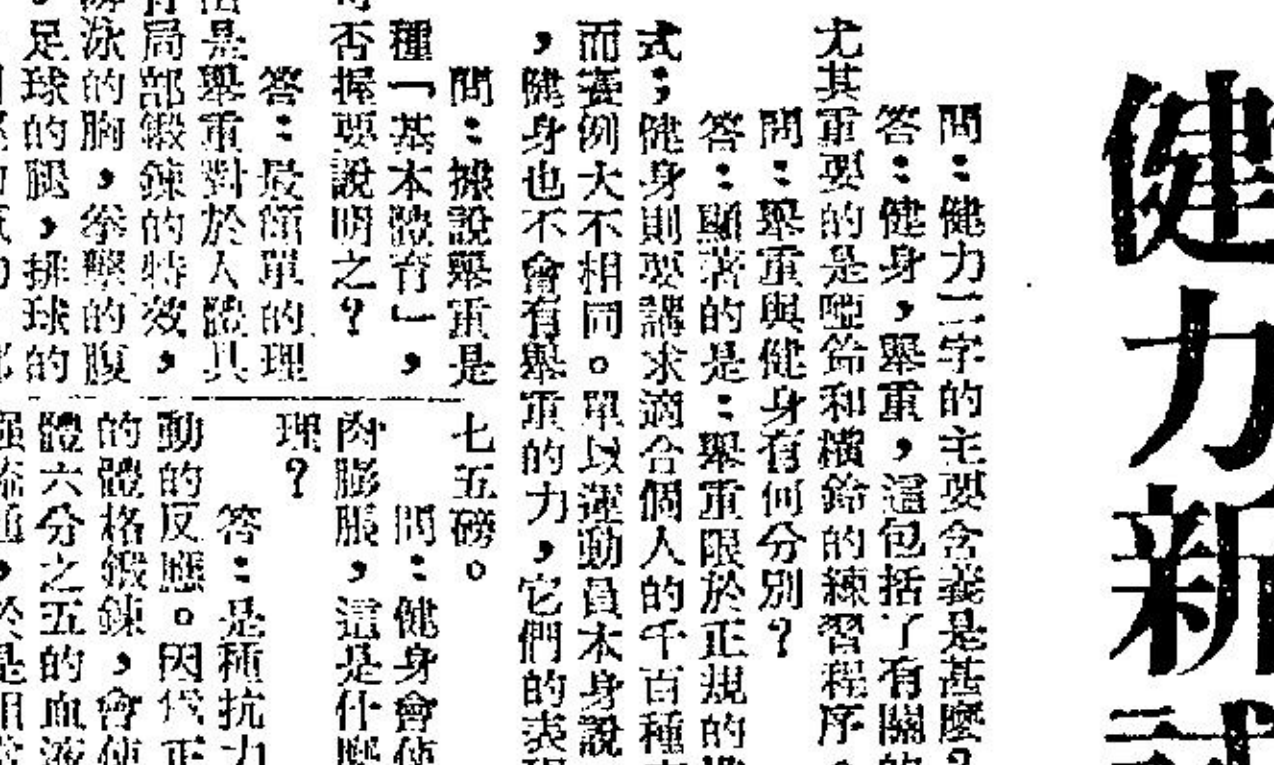 健力新試
問：健力二字的主要含義是甚麼？
答：健身，舉重，這包括了有關的
尤其重要的是啞鈴和橫鈴的練習程序，
問：舉重與健身有何分別？
答：顯著的是：舉重限於正規的
式；健身則要講求適合個人的千百種
而賽例大不相同。單以運動員本身說
，健身也不會有舉重的力，它們的表現
問：據說舉重是
種「基本體育」，
否握要說明之？
答：最簡單的理
是舉重對於人體具
局部鍛鍊的特效，
泳的胸，拳擊的腹
足球的腿，排球的
七五磅。
問：健身會使
肉膨脹，這是什麼
理？
答：是種抗力
動的反應。因代正
的體格鍛鍊，會使
體六分之五的血液